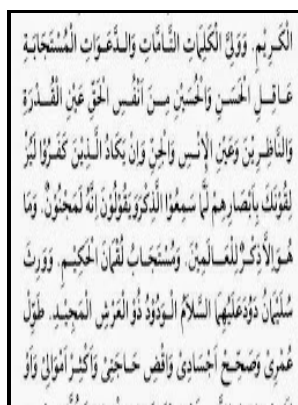 الْكَرِيْمِ. وَوَلِيَّ الْكَلِمَاتِ التَّامَّاتِ وَالدَّعَوَاتِ الْمُسْتَجَابَةِ
عَاقِلِ الْحَسَنِ وَالْحُسَيْنِ مِنْ اَنْفُسِ الْحَقِّ عَيْنِ الْقُدْرَةِ
وَالنَّاظِرِيْنَ وَعَيْنِ الْاِنْسِ وَالْجِنِّ وَاِنْ يَكَادُ الَّذِيْنَ كَفَرُوْا لَيُزْ
لِقُوْنَكَ بِاَبْصَارِهِمْ لَمَّا سَمِعُوا الذِّكْرَ وَيَقُوْلُوْنَ اِنَّهُ لَمَجْنُوْنٌ. وَمَا
هُوَ اِلَّا ذِكْرٌ لِلْعَالَمِيْنَ. وَمُسْتَجَابُ لُقْمَانَ الْحَكِيْمِ. وَوَرِثَ
سُلَيْمَانُ دَوُدَ عَلَيْهِمَا السَّلَامُ الْوَدُوْدُ ذُو الْعَرْشِ الْمَجِيْدِ. طَوِّلْ
عُمْرِىْ وَصَحِّحْ اَجْسَادِىْ وَاقْضِ حَاجَتِىْ وَاَكْثِرْ اَمْوَالِىْ وَاَوْ